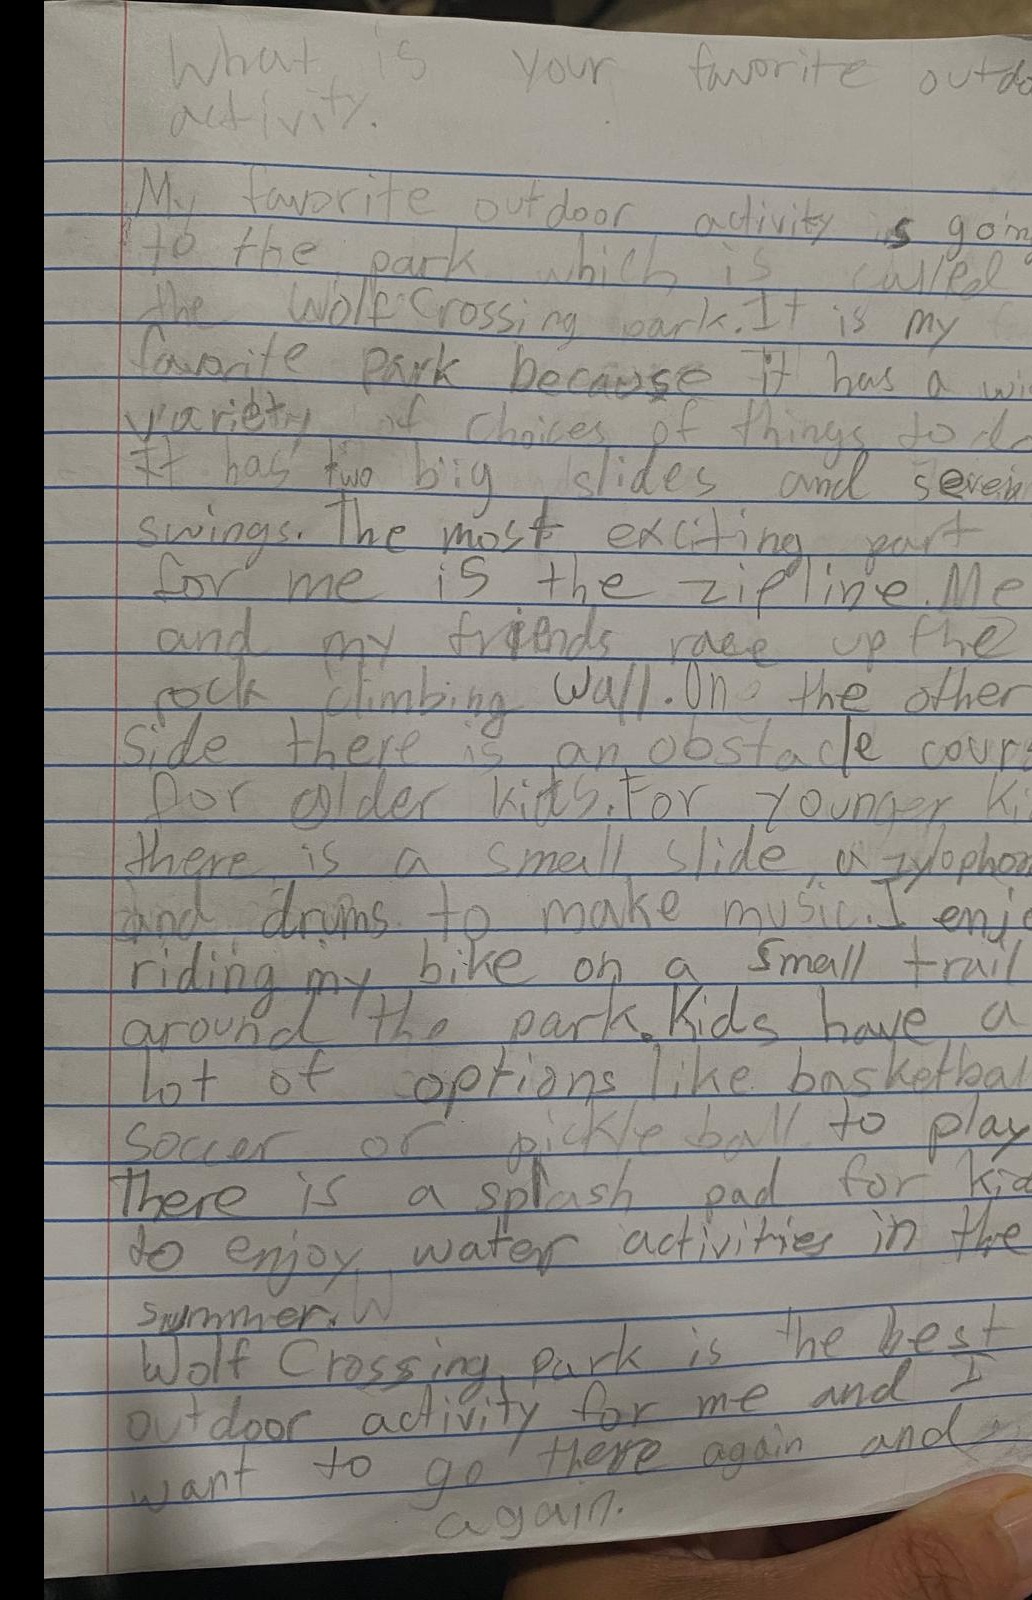 What is your favorite outdo
activity.
My favorite outdoor activity is goin
to the park which is called
the Wolf Crossing park. It is my
favorite park because it has a wi
variety of choices of things to do
It has two big slides and seven
swings. The most exciting part
for me is the zipline. Me
and my friends race up the
rock climbing wall. On the other
side there is an obstacle cours
for older kids. For younger Ki
there is a small slide, a zylophon
and drums to make music. I enjo
riding my bike on a small trail
around the park. Kids have a
lot of options like basketbal
soccer or pickle ball to play
There is a splash pad for kid
to enjoy water activities in the
summer. W
Wolf Crossing park is the best
outdoor activity for me and I
want to go there again and
again.